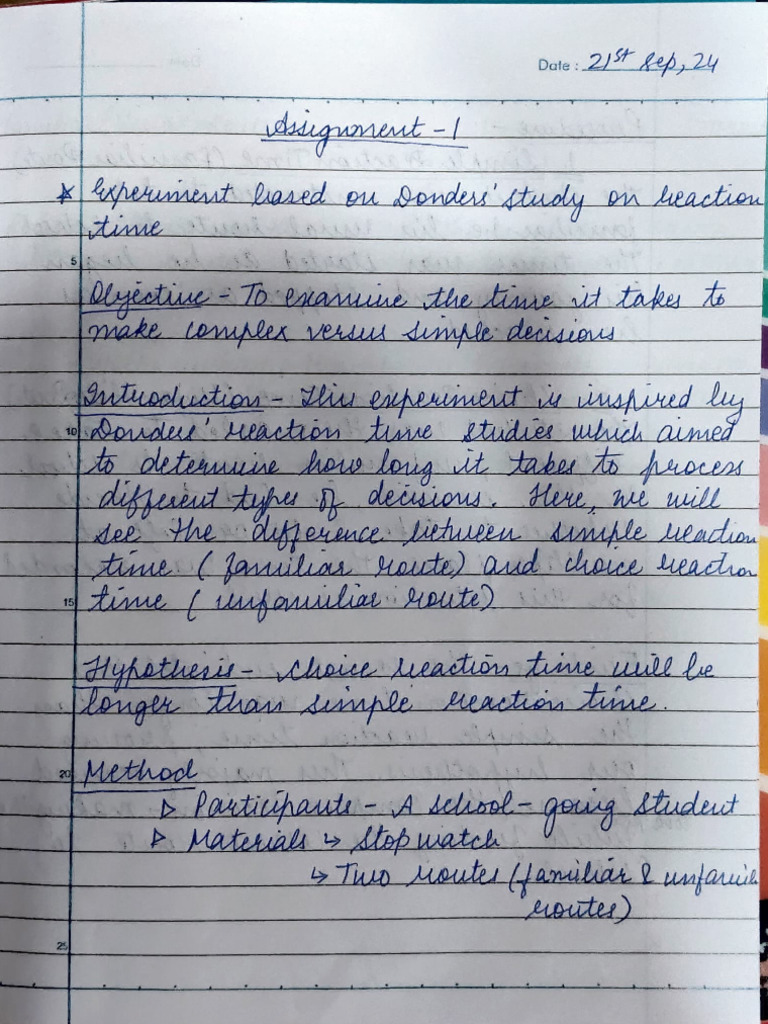 Date : 21st Sep, 24
Assignment - 1
* Experiment based on Donders' study on reaction
time
5
Objective - To examine the time it takes to
make complex versus simple decisions
Introduction - This experiment is inspired by
10 Donders' reaction time studies which aimed
to determine how long it takes to process
different types of decisions. Here, we will
see the difference between simple reaction
time ( familiar route) and choice reaction
15 time ( unfamiliar route)
Hypothesis - choice reaction time will be
longer than simple reaction time.
20 Method
▷ Participants - A school - going student
▷ Materials ↳ Stopwatch
↳ Two routes (familiar & unfamiliar
routes)
25